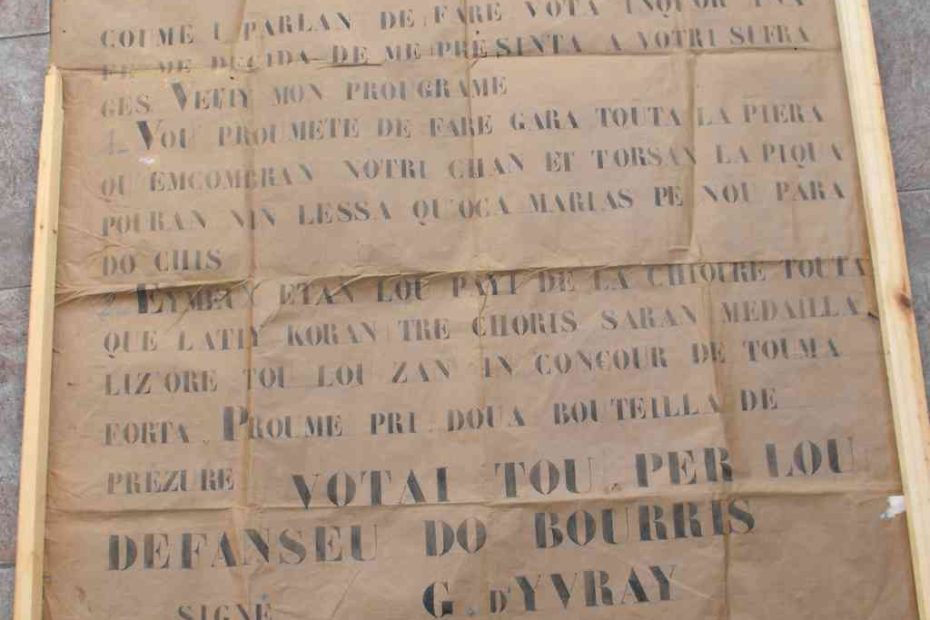 COUME I PARLAN DE FARE VOTA INQUOR
ME DECIDA DE ME PRESINTA A VOTRI SUFRA
GES VEFIY MON PROUGRAME
1_ VOU PROUMETE DE FARE GARA TOUTA LA PIERA
QU EMCOMBRAN NOTRI CHAN ET TORSAN LA PIQUA
POURAN NIN LESSA QU'OCA MARIAS PE NOU PARA
DO CHIS
2_ EYMEUX ETAN LOU PAYI DE LA CHIOURE TOUTA
QUE LATIY KORAN TRE CHORIS SARAN MEDAILLA
LIZ'ORE TOU LOU ZAN IN CONCOUR DE TOUMA
FORTA. PROUME PRI. DOUA BOUTEILLA DE
PRÉZURE VOTAI TOU. PER LOU
DEFANSEU DO BOURRIS
SIGNÉ G. D'YVRAY